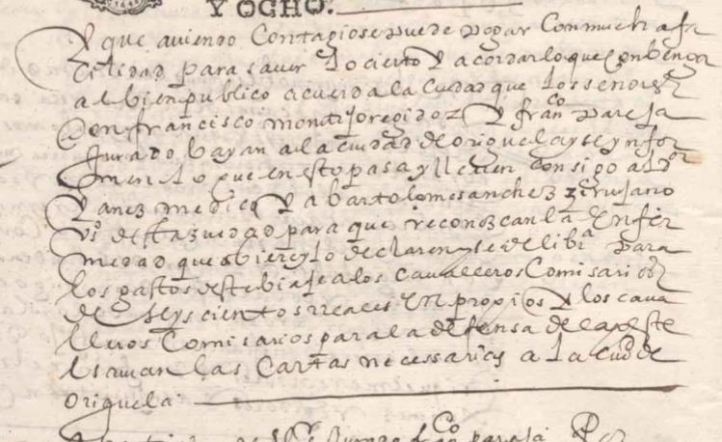 Y OCHO.
Y que aviendo Contagio se puede pegar Con mucha fa
cilidad para saver lo cierto y acordar lo que Conbenga
al bien publico acuerda la ciudad que los señores
Don francisco montijo regidor y fran.co pareja
Jurado bayan a la ciudad de origuela y se ynfor
men lo que en esto pasa y lleven consigo al D.or
yanez medico y a bartolome sanchez zirujano
v.os desta zuedad para que reconozcan la Enfer
medad que obiere y lo declaren y se de libr.a para
los gastos deste biaje a los cavalleros Comisarios
de seys cientos rreales En propios y los cava
lleros Comisarios para la defensa de la peste
escrivan las Cartas necessarias a la ciud de
origuela